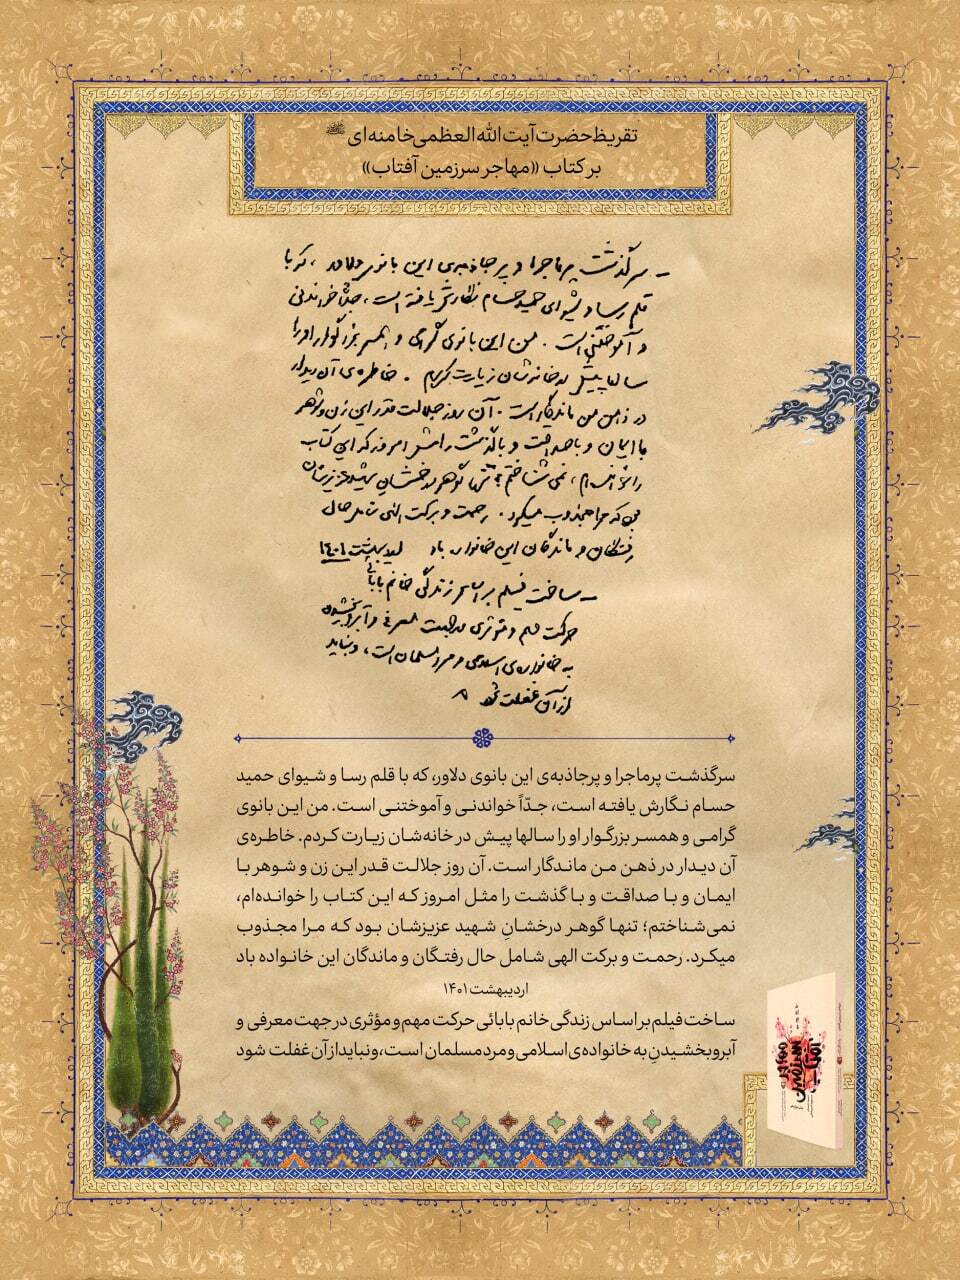 تقریظ حضرت آیت الله العظمی خامنه‌ای
بر کتاب «مهاجر سرزمین آفتاب»
ـ سرگذشت پرماجرا و پرجاذبه‌ی این بانوی دلاور، که با
قلم رسا و شیوای حمید حسام نگارش یافته است، جدّاً خواندنی
و آموختنی است. من این بانوی گرامی و همسر بزرگوار او را
سالها پیش در خانه‌شان زیارت کردم. خاطره‌ی آن دیدار
در ذهن من ماندگار است. آن روز جلالت قدر این زن و شوهر
با ایمان و با صداقت و با گذشت را مثل امروز که این کتاب
را خوانده‌ام، نمی‌شناختم؛ تنها گوهر درخشان شهید عزیزشان
بود که مرا مجذوب میکرد. رحمت و برکت الهی شامل حال
رفتگان و ماندگان این خانواده باد اردیبهشت ۱۴۰۱
ـ ساخت فیلم بر اساس زندگی خانم بابائی
حرکت مهم و مؤثری در جهت معرفی و آبرو بخشیدن
به خانواده‌ی اسلامی و مرد مسلمان است، و نباید
از آن غفلت شود
سرگذشت پرماجرا و پرجاذبه‌ی این بانوی دلاور، که با قلم رسا و شیوای حمید
حسام نگارش یافته است، جدّاً خواندنی و آموختنی است. من این بانوی
گرامی و همسر بزرگوار او را سالها پیش در خانه‌شان زیارت کردم. خاطره‌ی
آن دیدار در ذهن من ماندگار است. آن روز جلالت قدر این زن و شوهر با
ایمان و با صداقت و با گذشت را مثل امروز که این کتاب را خوانده‌ام،
نمی‌شناختم؛ تنها گوهر درخشانِ شهید عزیزشان بود که مرا مجذوب
میکرد. رحمت و برکت الهی شامل حال رفتگان و ماندگان این خانواده باد
اردیبهشت ۱۴۰۱
ساخت فیلم بر اساس زندگی خانم بابائی حرکت مهم و مؤثری در جهت معرفی و
آبرو بخشیدنِ به خانواده‌ی اسلامی و مرد مسلمان است، و نباید از آن غفلت شود
مهاجر
سرزمین
آفتاب